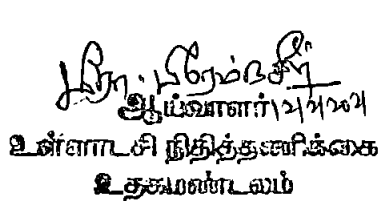 பிரேம்நசீர்
ஆய்வாளர்
உள்ளாட்சி நிதித்தணிக்கை
உதகமண்டலம்